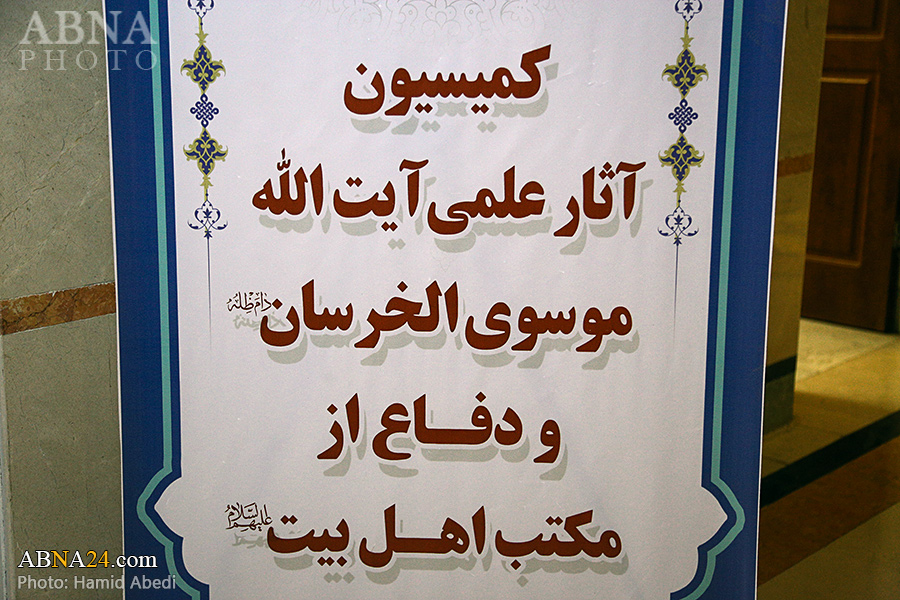 ABNA
PHOTO
کمیسیون
آثار علمی آیت الله
موسوی الخرسان دام ظله
و دفاع از
مکتب اهل بیت علیهم السلام
ABNA24.com
Photo: Hamid Abedi